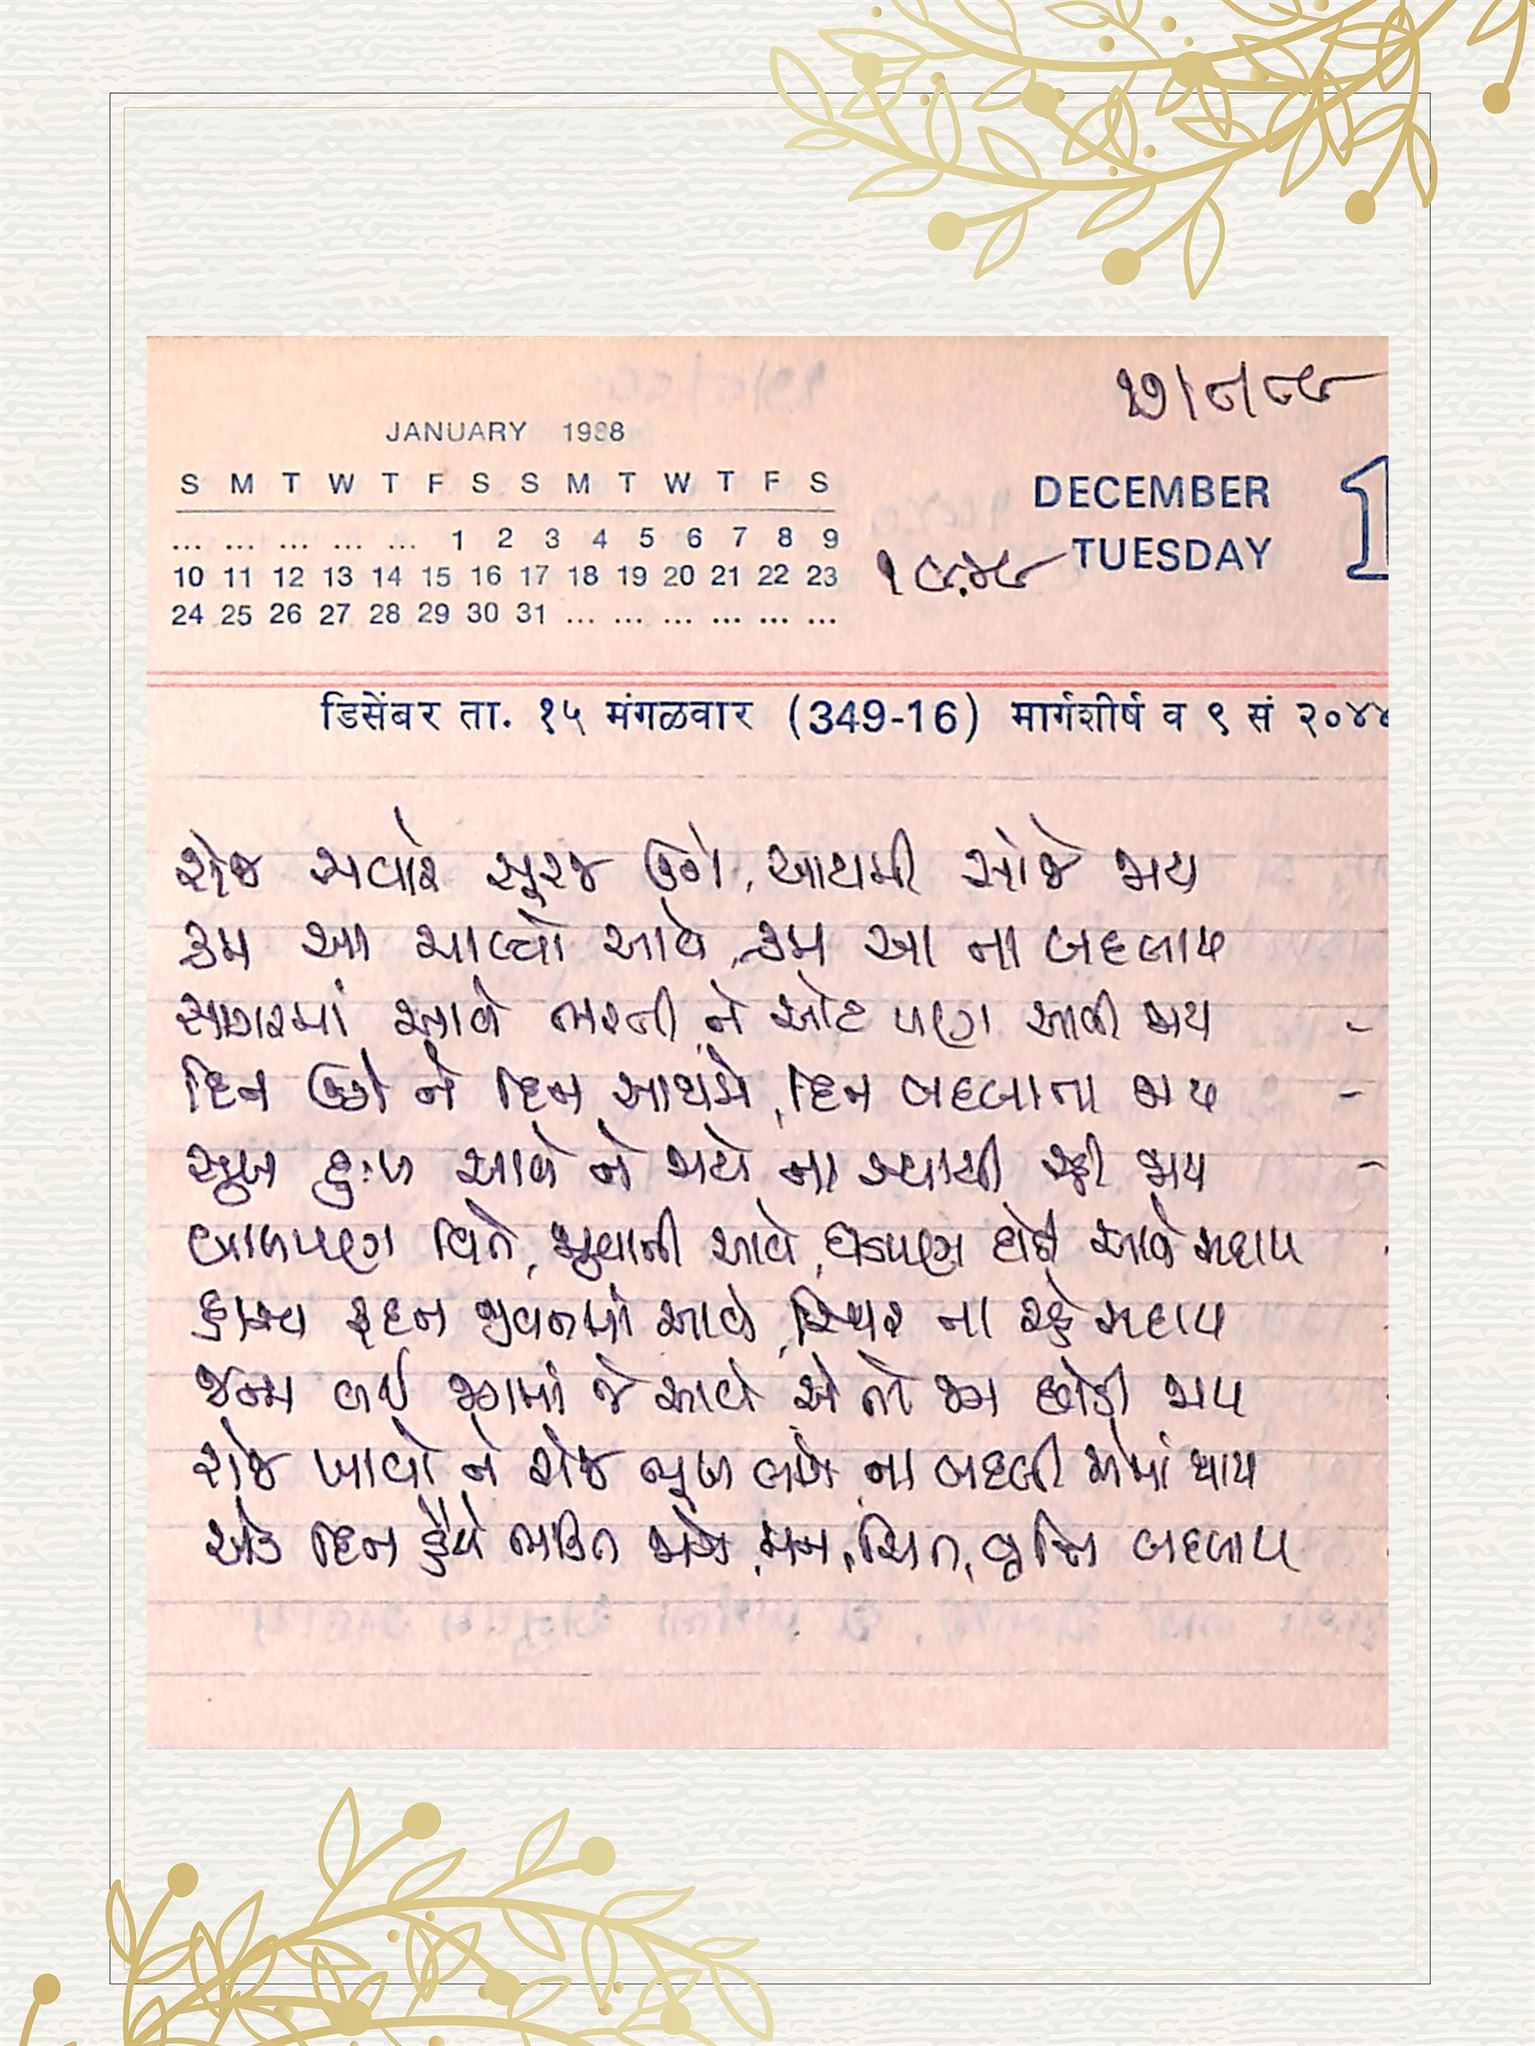 ૨૭/૮/૮૯
JANUARY 1988
S M T W T F S S M T W T F S
... ... ... ... ... 1 2 3 4 5 6 7 8 9
10 11 12 13 14 15 16 17 18 19 20 21 22 23
24 25 26 27 28 29 30 31 ... ... ... ... ... ...
DECEMBER
TUESDAY
૧૯૪૯
डिसेंबर ता. १५ मंगळवार (349-16) मार्गशीर्ष व ९ सं २०४४
રોજ સવારે સૂરજ ઉગે, આથમી સાંજે જાય
ક્રમ આ ચાલ્યો આવે, ક્રમ આ ના બદલાય
સાગરમાં આવે ભરતી, ને ઓટ પણ આવી જાય
દિન ઉગે ને દિન આથમે, દિન બદલાતા જાય
સુખ દુઃખ આવે ને જાયે ના સ્થાયી રહી જાય
બાળપણ વિતે, જુવાની આવે, ઘડપણ દોડી આવે સદાય
હાસ્ય રૂદન જીવનમાં આવે, સ્થિર ના રહે સદાય
જન્મ લઈ જગમાં જે આવે એ તો જગ છોડી જાય
રોજ ખાવો ને રોજ ભૂખ લાગે, ના બદલી એમાં થાય
એક દિન હૈયે ભક્તિ જાગે, મન, ચિત્ત, વૃત્તિ બદલાય